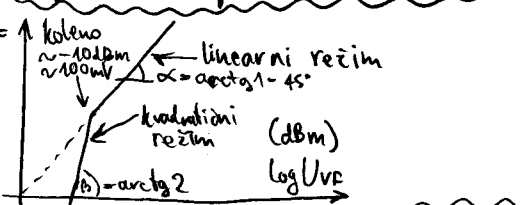 =
koleno
~-10dBm
~100mV
linearni režim
α=arctg1-45°
kvadratični
režim
(dBm)
β)=arctg2
log UVF